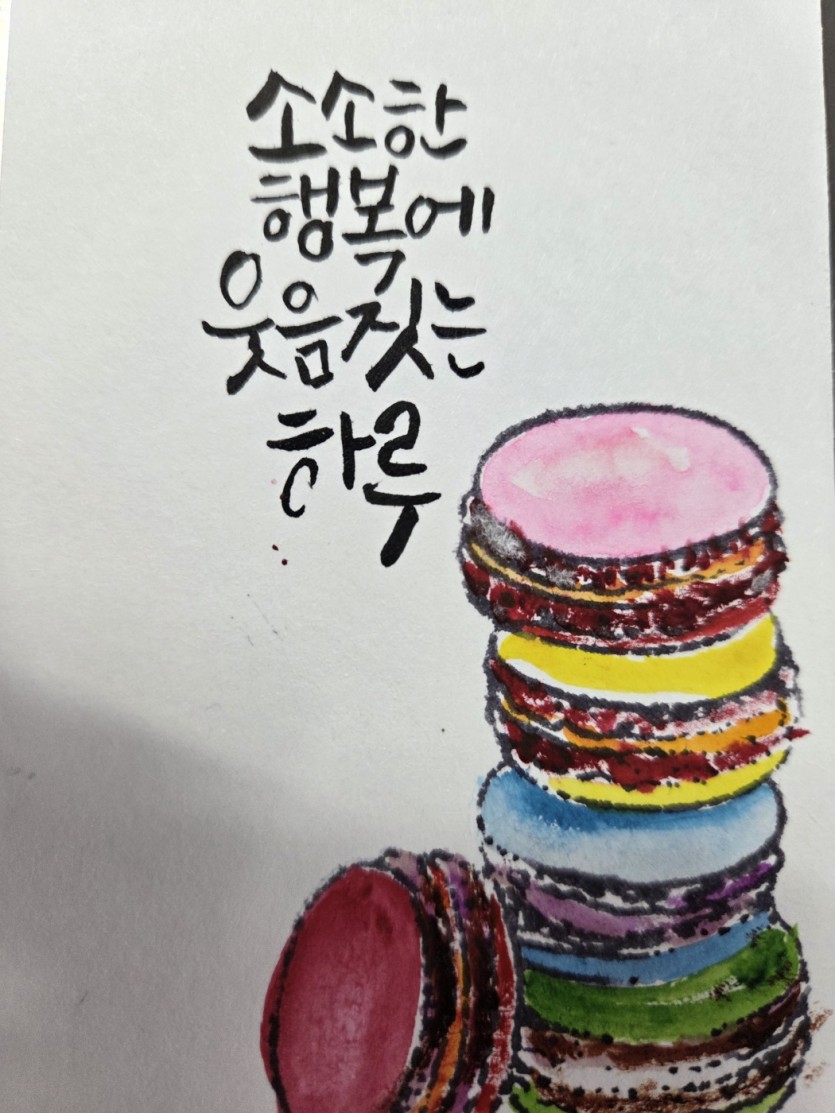 소소한
행복에
웃음짓는
하루